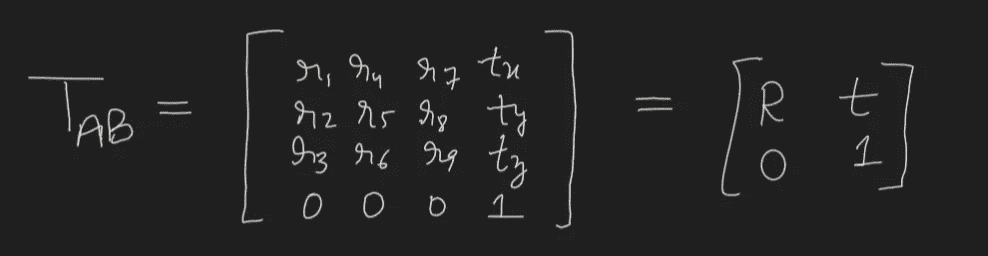 T_AB = [ r₁ r₄ r₇ tₓ ; r₂ r₅ r₈ t_y ; r₃ r₆ r₉ t_z ; 0 0 0 1 ] = [ R t ; 0 1 ]